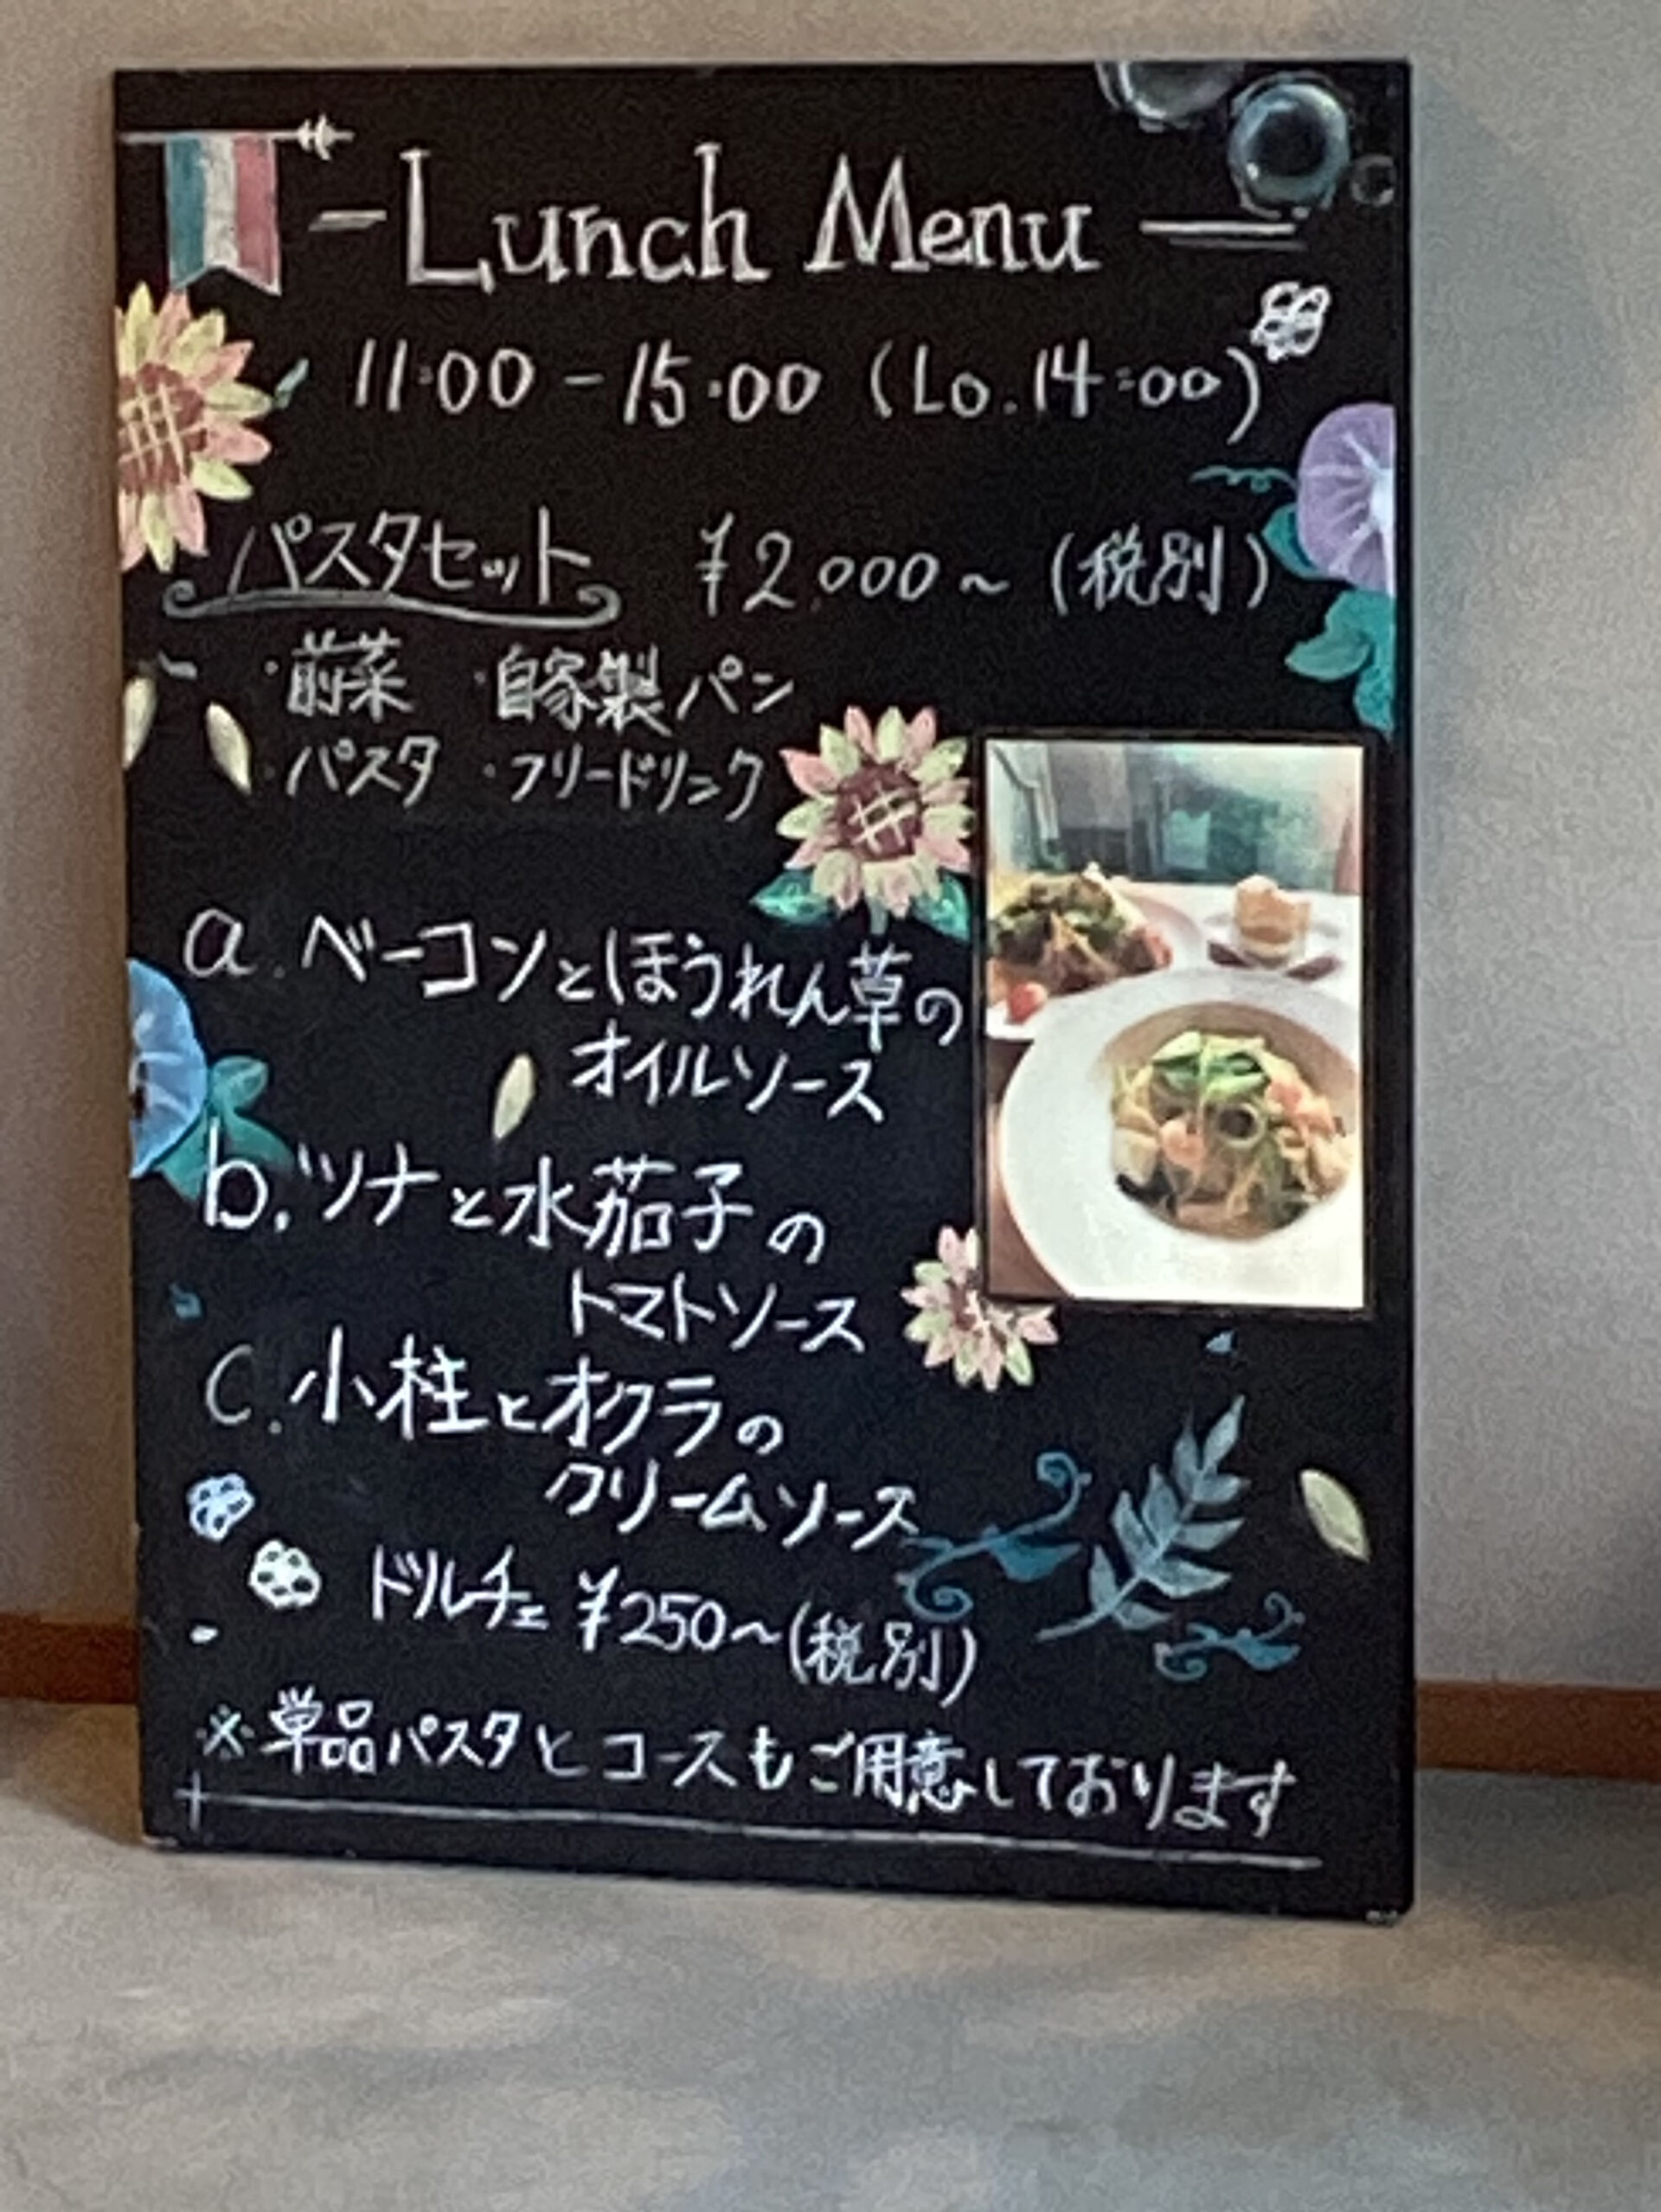 Lunch Menu
11:00 - 15:00 (Lo. 14:00)
パスタセット ¥2,000~ (税別)
・前菜 ・自家製パン
・パスタ ・フリードリンク
a. ベーコンとほうれん草の
オイルソース
b. ツナと水茄子の
トマトソース
c. 小柱とオクラの
クリームソース
ドルチェ ¥250~(税別)
※単品パスタとコースもご用意しております